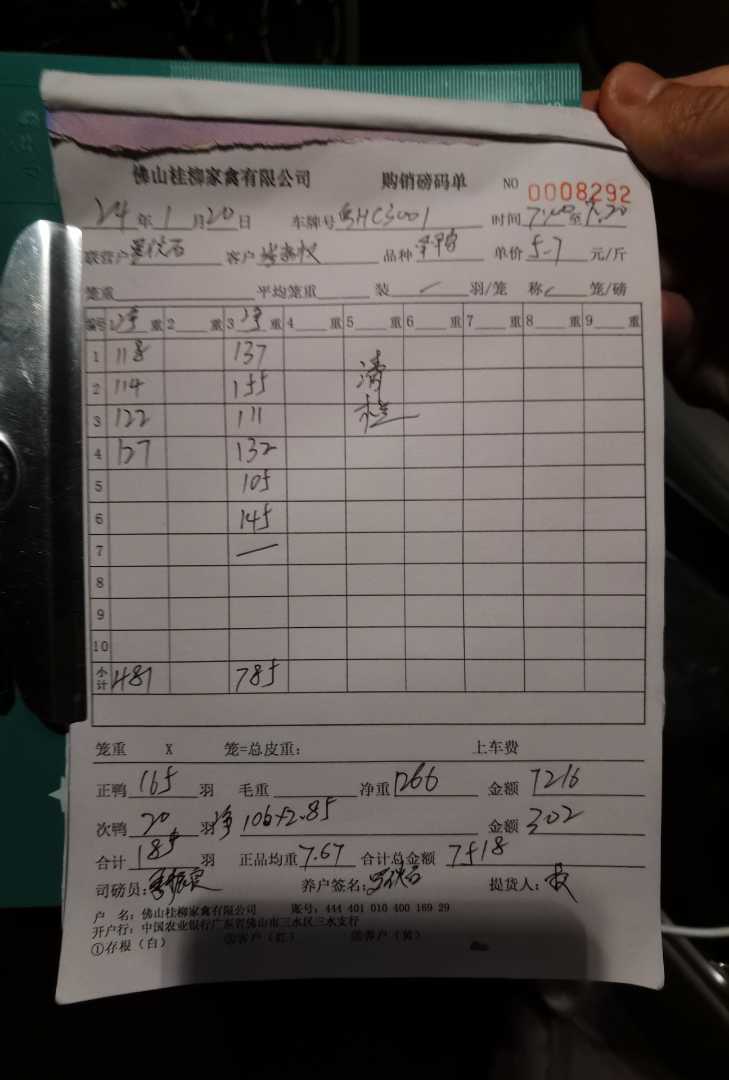 佛山桂柳家禽有限公司 购销磅码单 NO 0008292
24年1月20日 车牌号 时间7:00至7:20
联营户 客户 品种 单价5.7元/斤
笼重 平均笼重 装 羽/笼 称 笼/磅
编号 1净重 2 重 3净重 4 重 5 重 6 重 7 重 8 重 9 重
1 118 137 清
2 114 155
3 122 111
4 127 132
5 105
6 145
7 —
8
9
10
小计 481 785
笼重 X 笼=总皮重: 上车费
正鸭165羽 毛重 净重1266 金额7216
次鸭20羽 净 106×2.85 金额302
合计185羽 正品均重7.67 合计总金额7518
司磅员: 养户签名: 提货人:
户 名:佛山桂柳家禽有限公司 账号:444 401 010 400 169 29
开户行:中国农业银行广东省佛山市三水区三水支行
①存根(白) ②客户(红) ③养户(黄)